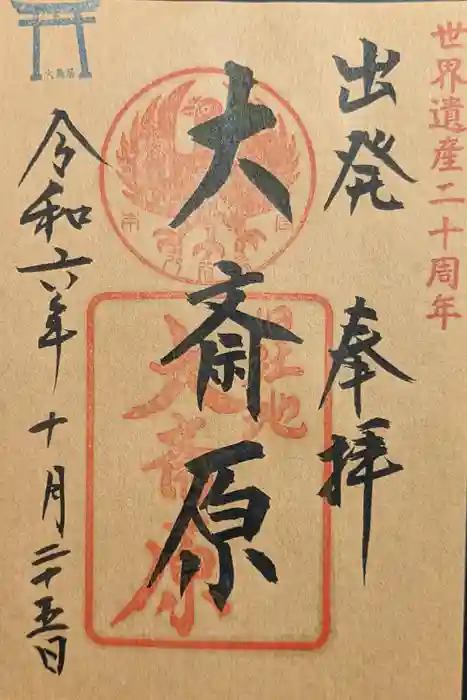 世界遺産二十周年
出発 奉拝
大斎原
旧社地
大斎原
令和六年 十月二十五日
大鳥居